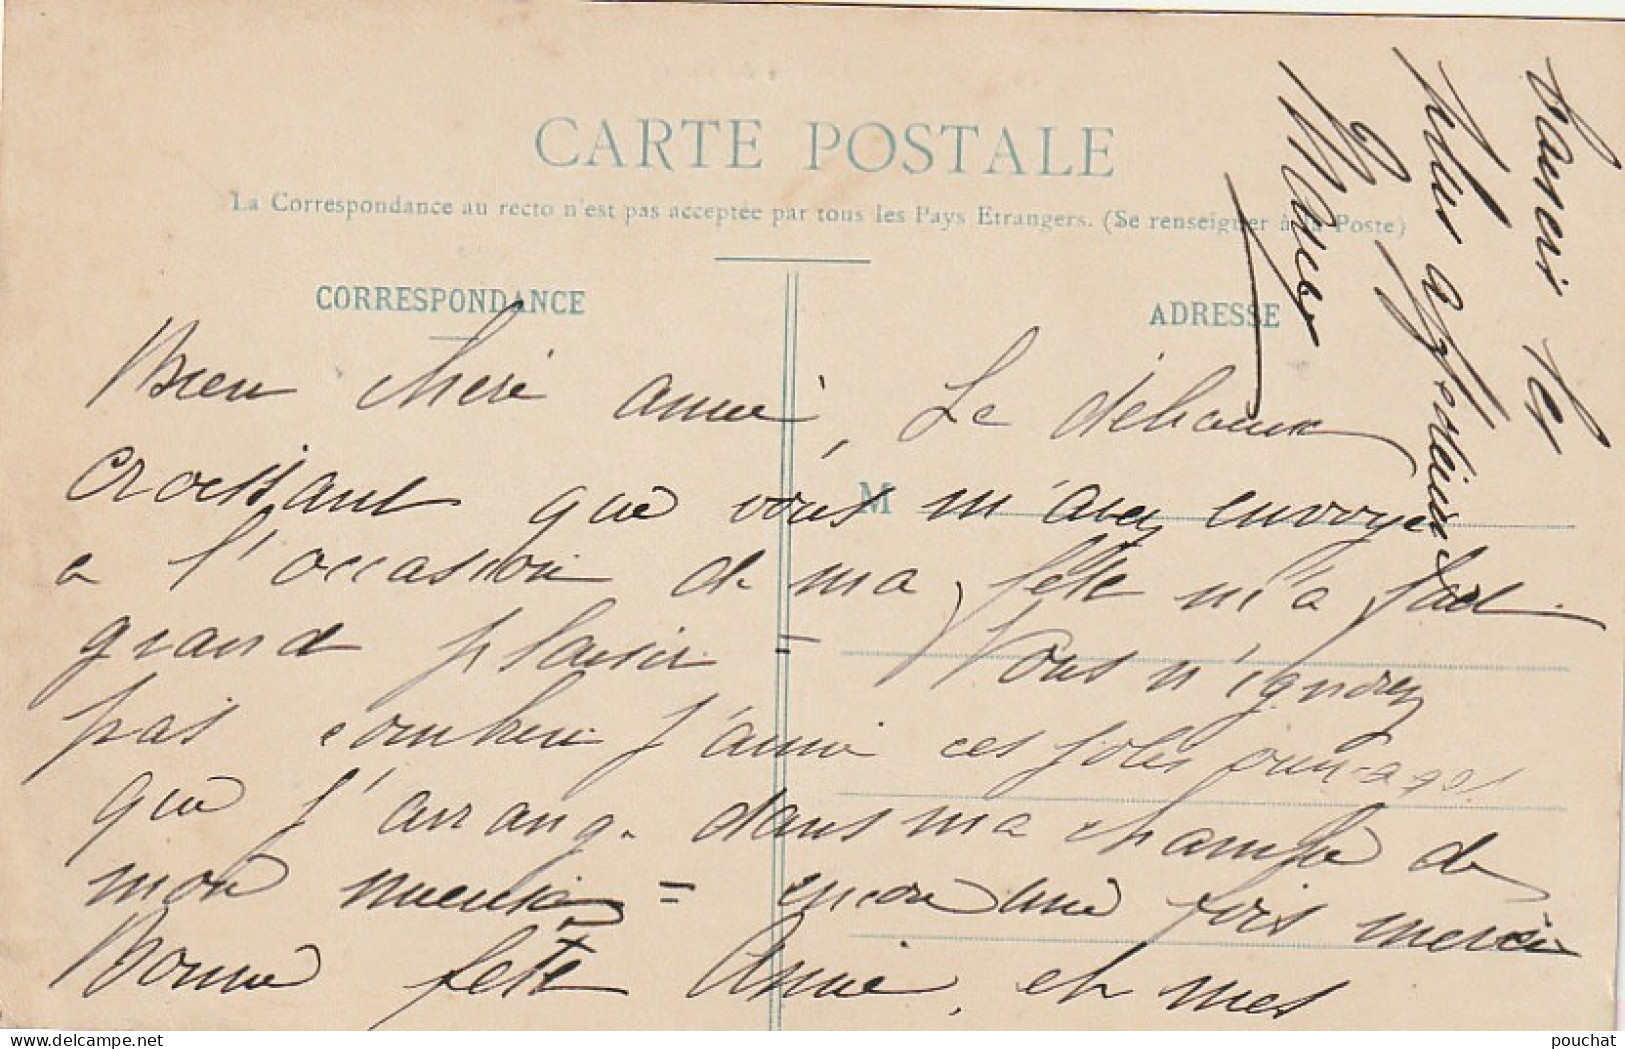 CARTE POSTALE
La Correspondance au recto n'est pas acceptée par tous les Pays Etrangers. (Se renseigner à la Poste)
CORRESPONDANCE
ADRESSE
M
Bien chère amie, Le délicieux
croissant que vous m'avez envoyé
a l'occasion de ma fête m'a fait
grand plaisir = Vous n'ignorez
pas combien j'aime ces jolis ouvrages
que j'arrange dans ma chambre de
mon mieux = encore une fois merci
Bonne fête Amie, et mes
baisers les
plus affectueux